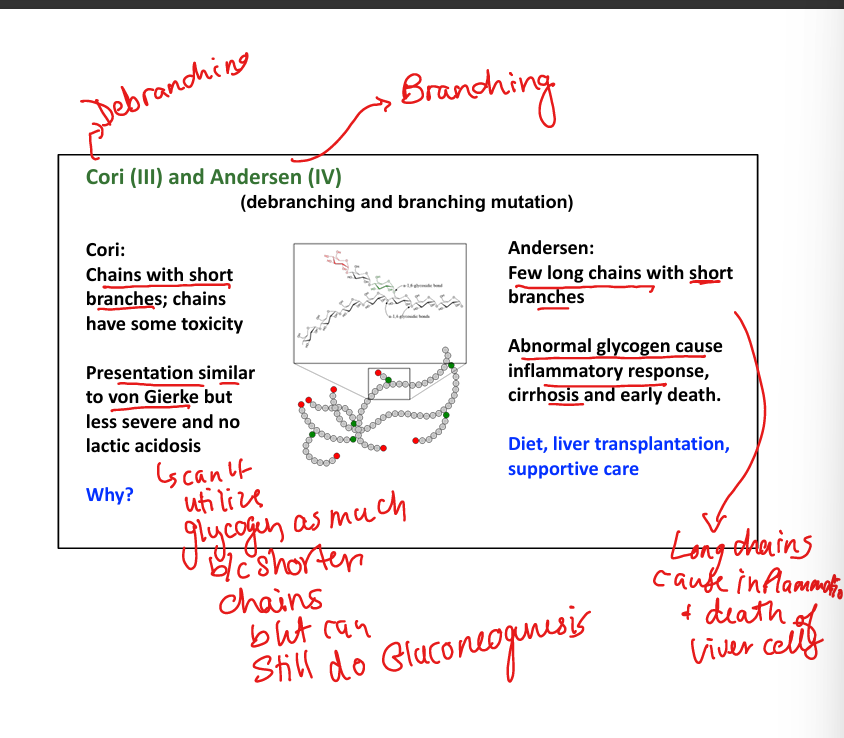 Debranching
Branching
Cori (III) and Andersen (IV)
(debranching and branching mutation)
Cori:
Chains with short
branches; chains
have some toxicity
Presentation similar
to von Gierke but
less severe and no
lactic acidosis
Why?
can't
utilize
glycogen as much
b/c shorter
chains
but can
still do Gluconeogenesis
α-1,6-glycosidic bond
α-1,4-glycosidic bonds
Andersen:
Few long chains with short
branches
Abnormal glycogen cause
inflammatory response,
cirrhosis and early death.
Diet, liver transplantation,
supportive care
Long chains
cause inflammation
+ death of
liver cells